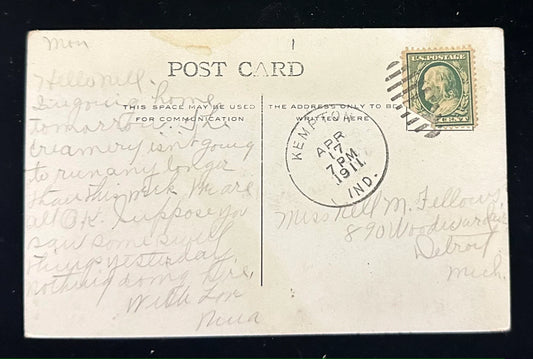 Mon
POST CARD
THIS SPACE MAY BE USED
FOR COMMUNICATION
THE ADDRESS ONLY TO BE
WRITTEN HERE
U.S. POSTAGE
CENT
KEMPTON
APR
17
7 PM
1911
IND.
Hello Nell.
I'm going home
tomorrow. The
creamery isn't going
to run any longer
than this week. We are
all O.K. Suppose you
saw some swell
things yesterday,
nothing doing here.
With Love
Nina
Miss Nell M. Fellows,
890 Woodward Av
Detroit
Mich.